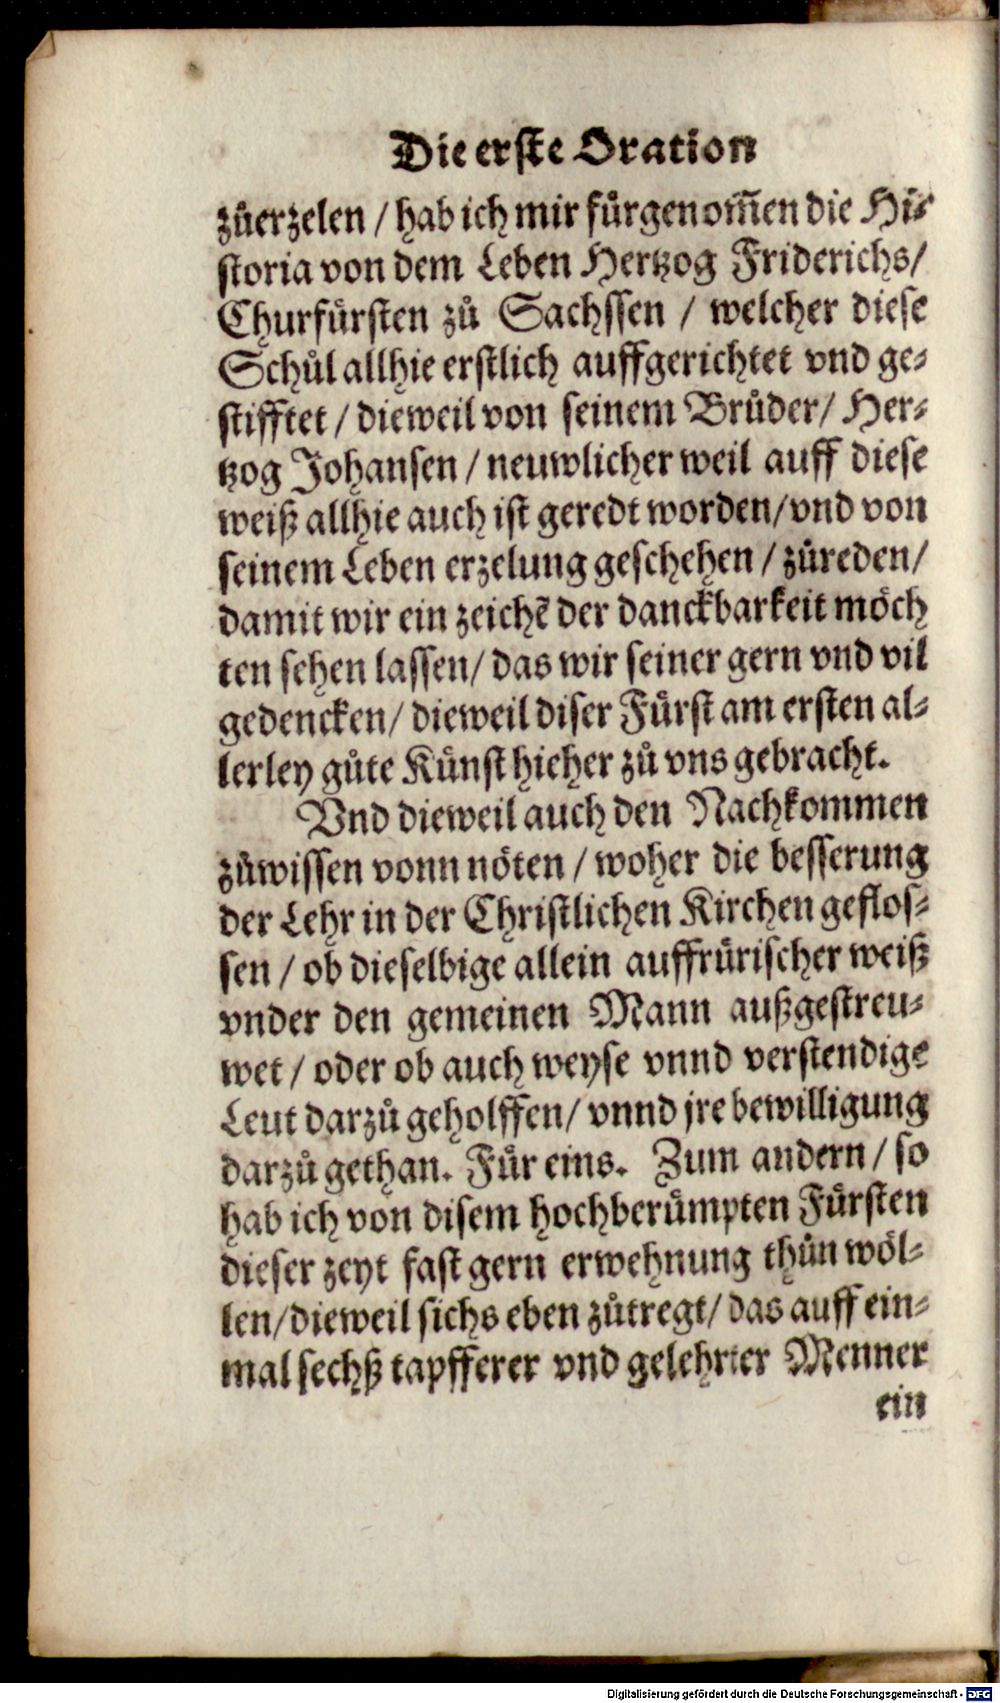 Die erste Oration
zůerzelen / hab ich mir fürgenom̃en die Hi⸗
storia von dem Leben Hertzog Friderichs/
Churfürsten zů Sachssen / welcher diese
Schůl allhie erstlich auffgerichtet vnd ge⸗
stifftet / dieweil von seinem Brůder/ Her⸗
tzog Johansen / neuwlicher weil auff diese
weiß allhie auch ist geredt worden/vnd von
seinem Leben erzelung geschehen / zůreden/
damit wir ein zeichẽ der danckbarkeit möch
ten sehen lassen/ das wir seiner gern vnd vil
gedencken/ dieweil diser Fürst am ersten al⸗
lerley gůte Künst hieher zů vns gebracht.
Vnd dieweil auch den Nachkommen
zůwissen vonn nöten / woher die besserung
der Lehr in der Christlichen Kirchen geflos⸗
sen / ob dieselbige allein auffrürischer weiß
vnder den gemeinen Mann außgestreu⸗
wet / oder ob auch weyse vnnd verstendige
Leut darzů geholffen/ vnnd jre bewilligung
darzů gethan. Für eins. Zum andern / so
hab ich von disem hochberümpten Fürsten
dieser zeyt fast gern erwehnung thůn wöl⸗
len/dieweil sichs eben zůtregt/ das auff ein⸗
mal sechß tapfferer vnd gelehrter Menner
ein
Digitalisierung gefördert durch die Deutsche Forschungsgemeinschaft - DFG